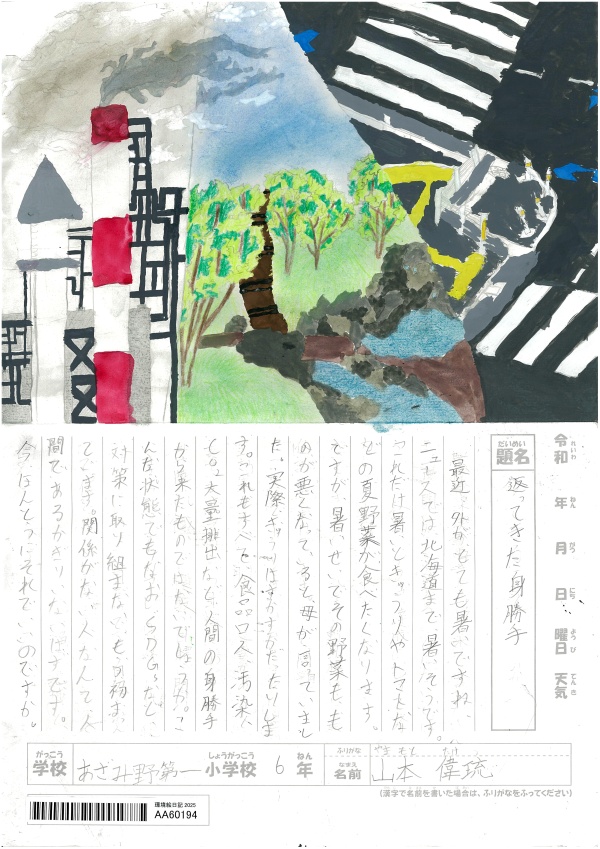 令和 れいわ 年 ねん 月 がつ 日 にち 曜日 ようび 天気 てんき
題名 だいめい
返ってきた身勝手
最近、外がとても暑いですね。
ニュースでは北海道まで暑いそうです。
これだけ暑いときゅうりやトマトな
どの夏野菜が食べたくなります。
ですが、暑いせいでその野菜もも
のが悪くなっていると母が言っていまし
た。実際きゅうりはすかすかだったりしま
す。これもすべて食品ロス、汚染、
CO₂大量排出など、人間の身勝手
から来たものではないでしょうか。こ
んな状態でもなおSDGsなどに
対策に取り組まない
ています。関係がない人なんて人
間であるかぎりいないはずです。
今ほんとうにそれでいいのですか。
学校 がっこう あざみ野第一 小学校 しょうがっこう 6 年 ねん
ふりがな やまもと
名前 なまえ 山本 偉琉
(漢字で名前を書いた場合は、ふりがなをふってください)
環境絵日記 2025
AA60194